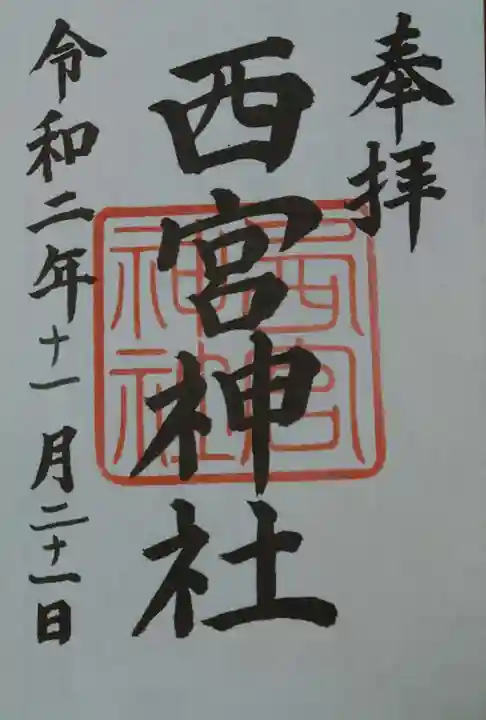 奉拝
西宮神社
西宮
神社
令和二年十一月二十一日